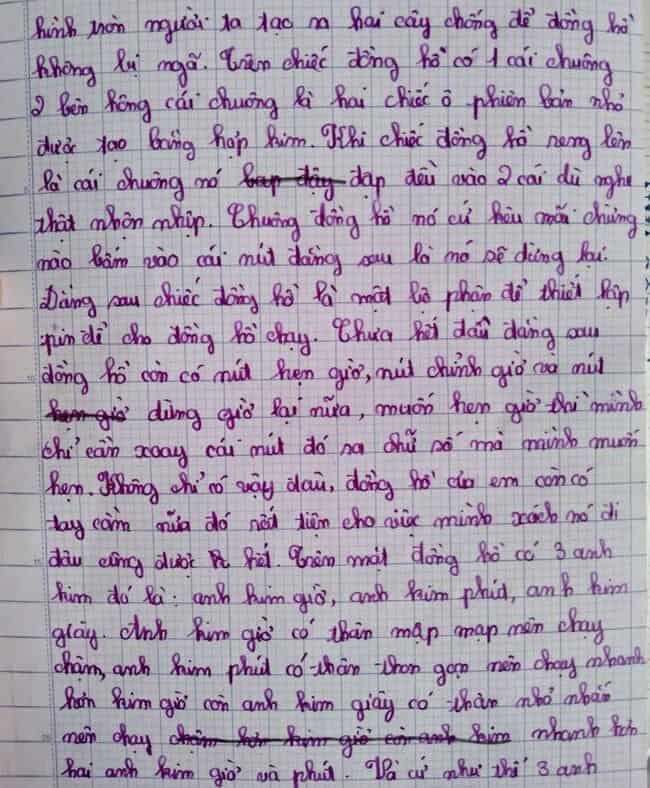 hình tròn người ta tạo ra hai cây chống để đồng hồ
không bị ngã. Trên chiếc đồng hồ có 1 cái chuông
2 bên hông cái chuông là hai chiếc ô phiên bản nhỏ
được tạo bằng hợp kim. Khi chiếc đồng hồ reng lên
là cái chuông nó đập đều vào 2 cái dù nghe
thật nhộn nhịp. Chuông đồng hồ nó cứ kêu mãi chừng
nào bấm vào cái nút đằng sau là nó sẽ dừng lại.
Đằng sau chiếc đồng hồ là một bộ phận để thiết lập
pin để cho đồng hồ chạy. Chưa hết đâu đằng sau
đồng hồ còn có nút hẹn giờ, nút chỉnh giờ và nút
hẹn giờ dừng giờ lại nữa, muốn hẹn giờ thì mình
chỉ cần xoay cái nút đó ra chữ số mà mình muốn
hẹn. Không chỉ có vậy đâu, đồng hồ của em còn có
tay cầm nữa đó rất tiện cho việc mình xách nó đi
đâu cũng được hết. Trên mặt đồng hồ có 3 anh
kim đó là: anh kim giờ, anh kim phút, anh kim
giây. Anh kim giờ có thân mập map nên chạy
chậm, anh kim phút có thân thon gọn nên chạy nhanh
hơn kim giờ còn anh kim giây có thân nhỏ nhắn
nên chạy chậm hơn kim giờ còn anh kim nhanh hơn
hai anh kim giờ và phút. Và cứ như thế 3 anh